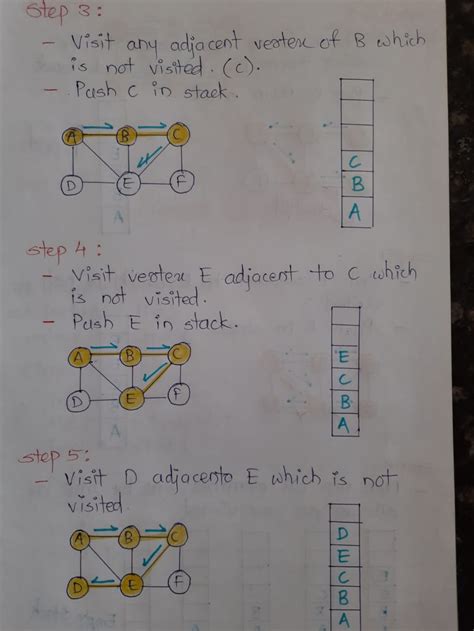 Step 3:
- Visit any adjacent vertex of B which
is not visited. (C).
- Push C in stack.
A B C
D E F
C
B
A
Step 4:
- Visit vertex E adjacent to C which
is not visited.
- Push E in stack.
A B C
D E F
E
C
B
A
Step 5:
- Visit D adjacento E which is not
visited
A B C
D E F
D
E
C
B
A